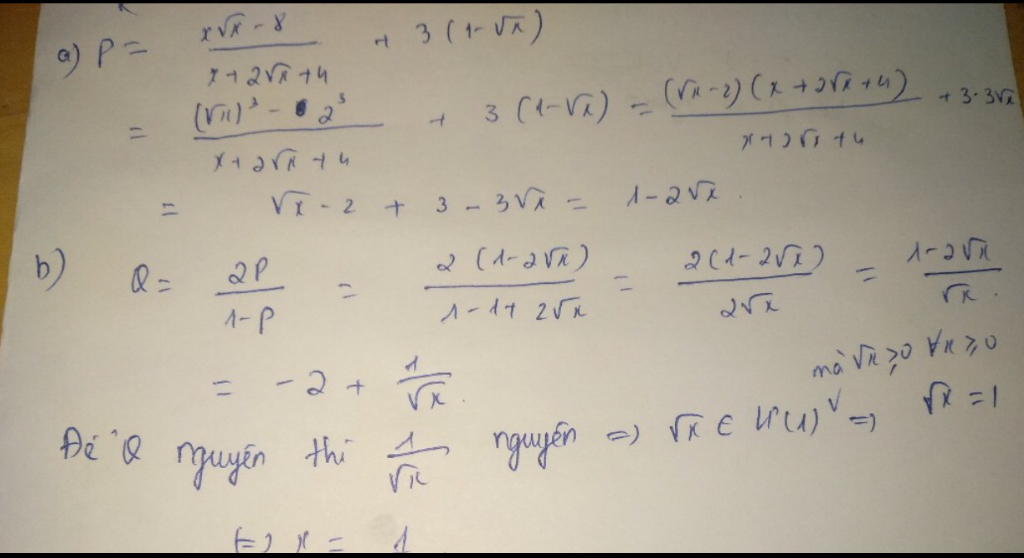 a) P = \frac{x\sqrt{x} - 8}{x + 2\sqrt{x} + 4} + 3(1 - \sqrt{x})
= \frac{(\sqrt{x})^3 - 2^3}{x + 2\sqrt{x} + 4} + 3(1 - \sqrt{x}) = \frac{(\sqrt{x} - 2)(x + 2\sqrt{x} + 4)}{x + 2\sqrt{x} + 4} + 3 - 3\sqrt{x}
= \sqrt{x} - 2 + 3 - 3\sqrt{x} = 1 - 2\sqrt{x}.
b) Q = \frac{2P}{1 - P} = \frac{2(1 - 2\sqrt{x})}{1 - 1 + 2\sqrt{x}} = \frac{2(1 - 2\sqrt{x})}{2\sqrt{x}} = \frac{1 - 2\sqrt{x}}{\sqrt{x}}.
= -2 + \frac{1}{\sqrt{x}}.
mà \sqrt{x} ≥ 0 ∀x ≥ 0
Để Q nguyên thì \frac{1}{\sqrt{x}} nguyên => \sqrt{x} ∈ Ư(1) => \sqrt{x} = 1
<=> x = 1